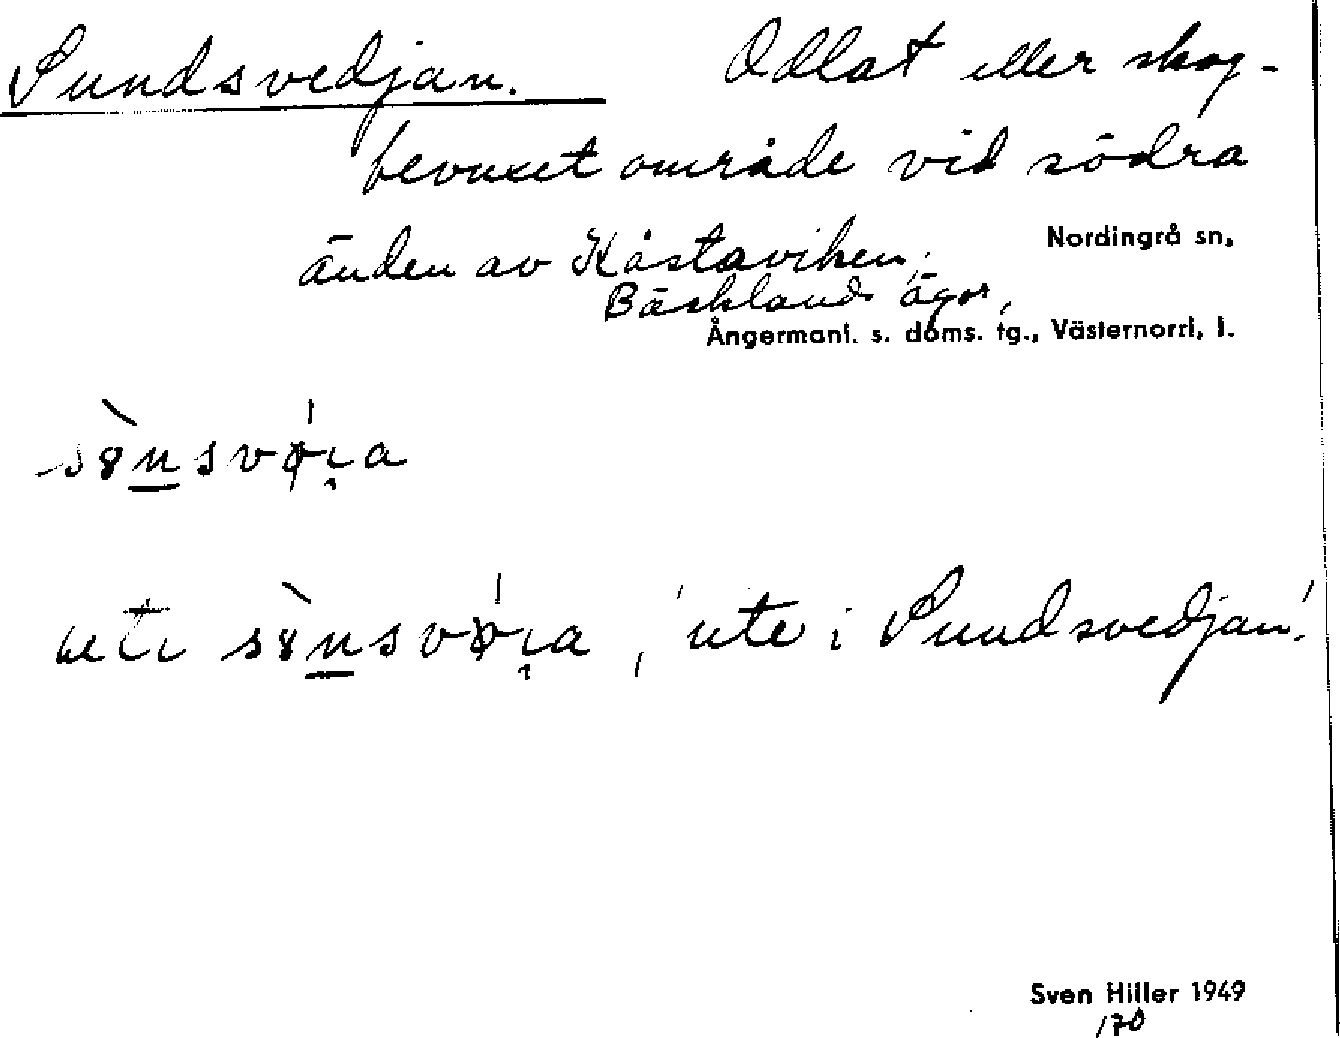 Sundsvedjan. Odlat eller skog-
bevuxet område vid södra
änden av Kåstaviken,
Nordingrå sn,
Bäcklands ägor,
Ångermanl. s. doms. tg., Västernorrl. l.
ute i Sundsvedjan!
Sven Hiller 1949
170